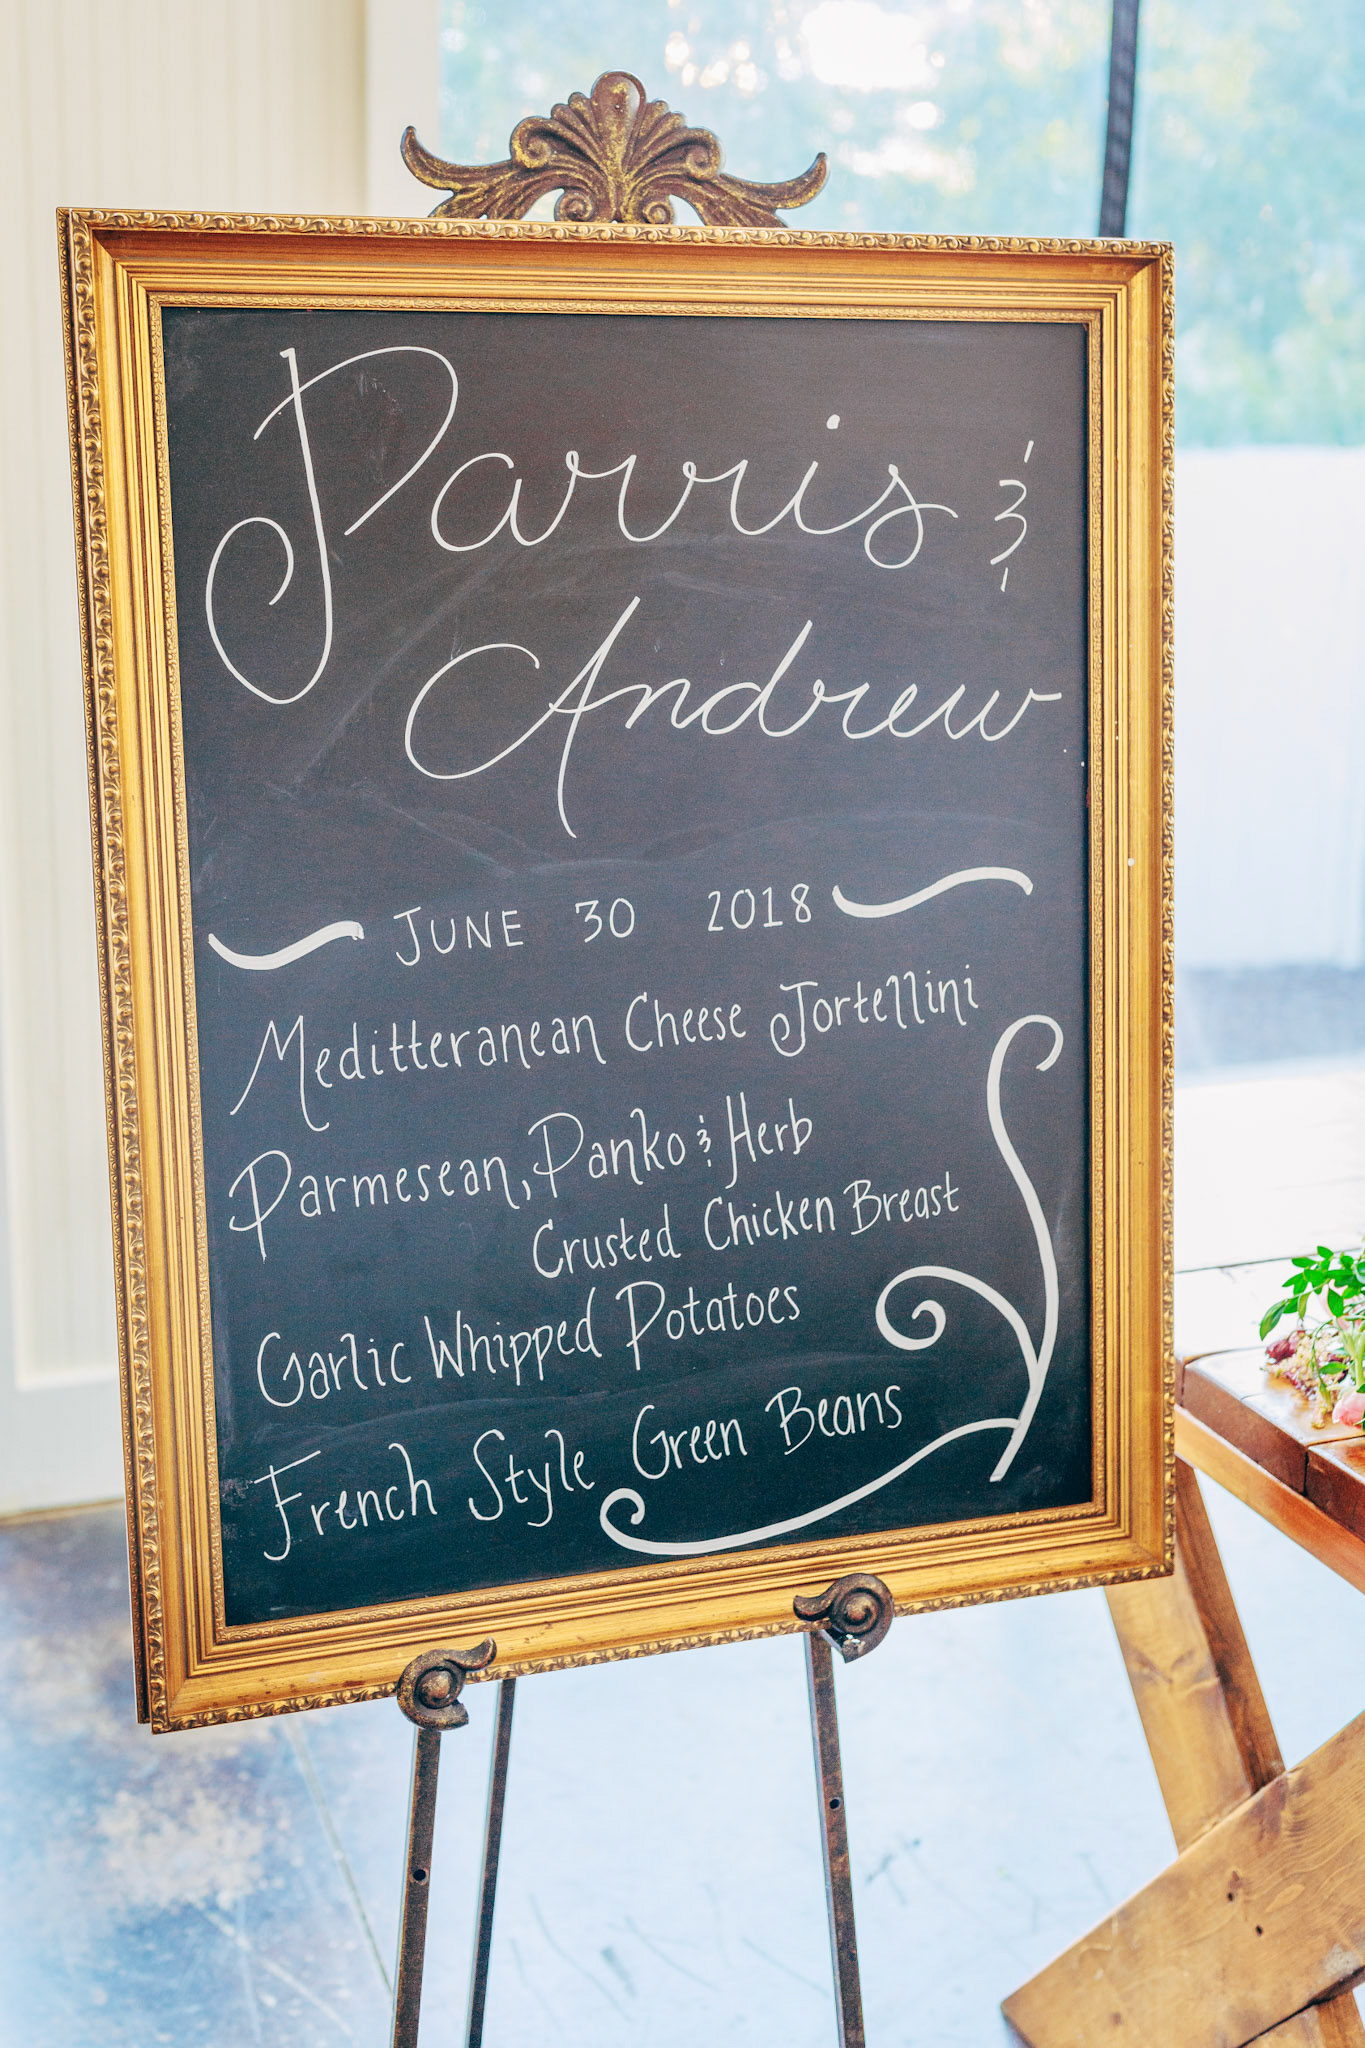 Parris &
Andrew
JUNE 30 2018
Meditteranean Cheese Tortellini
Parmesean, Panko & Herb
Crusted Chicken Breast
Garlic Whipped Potatoes
French Style Green Beans